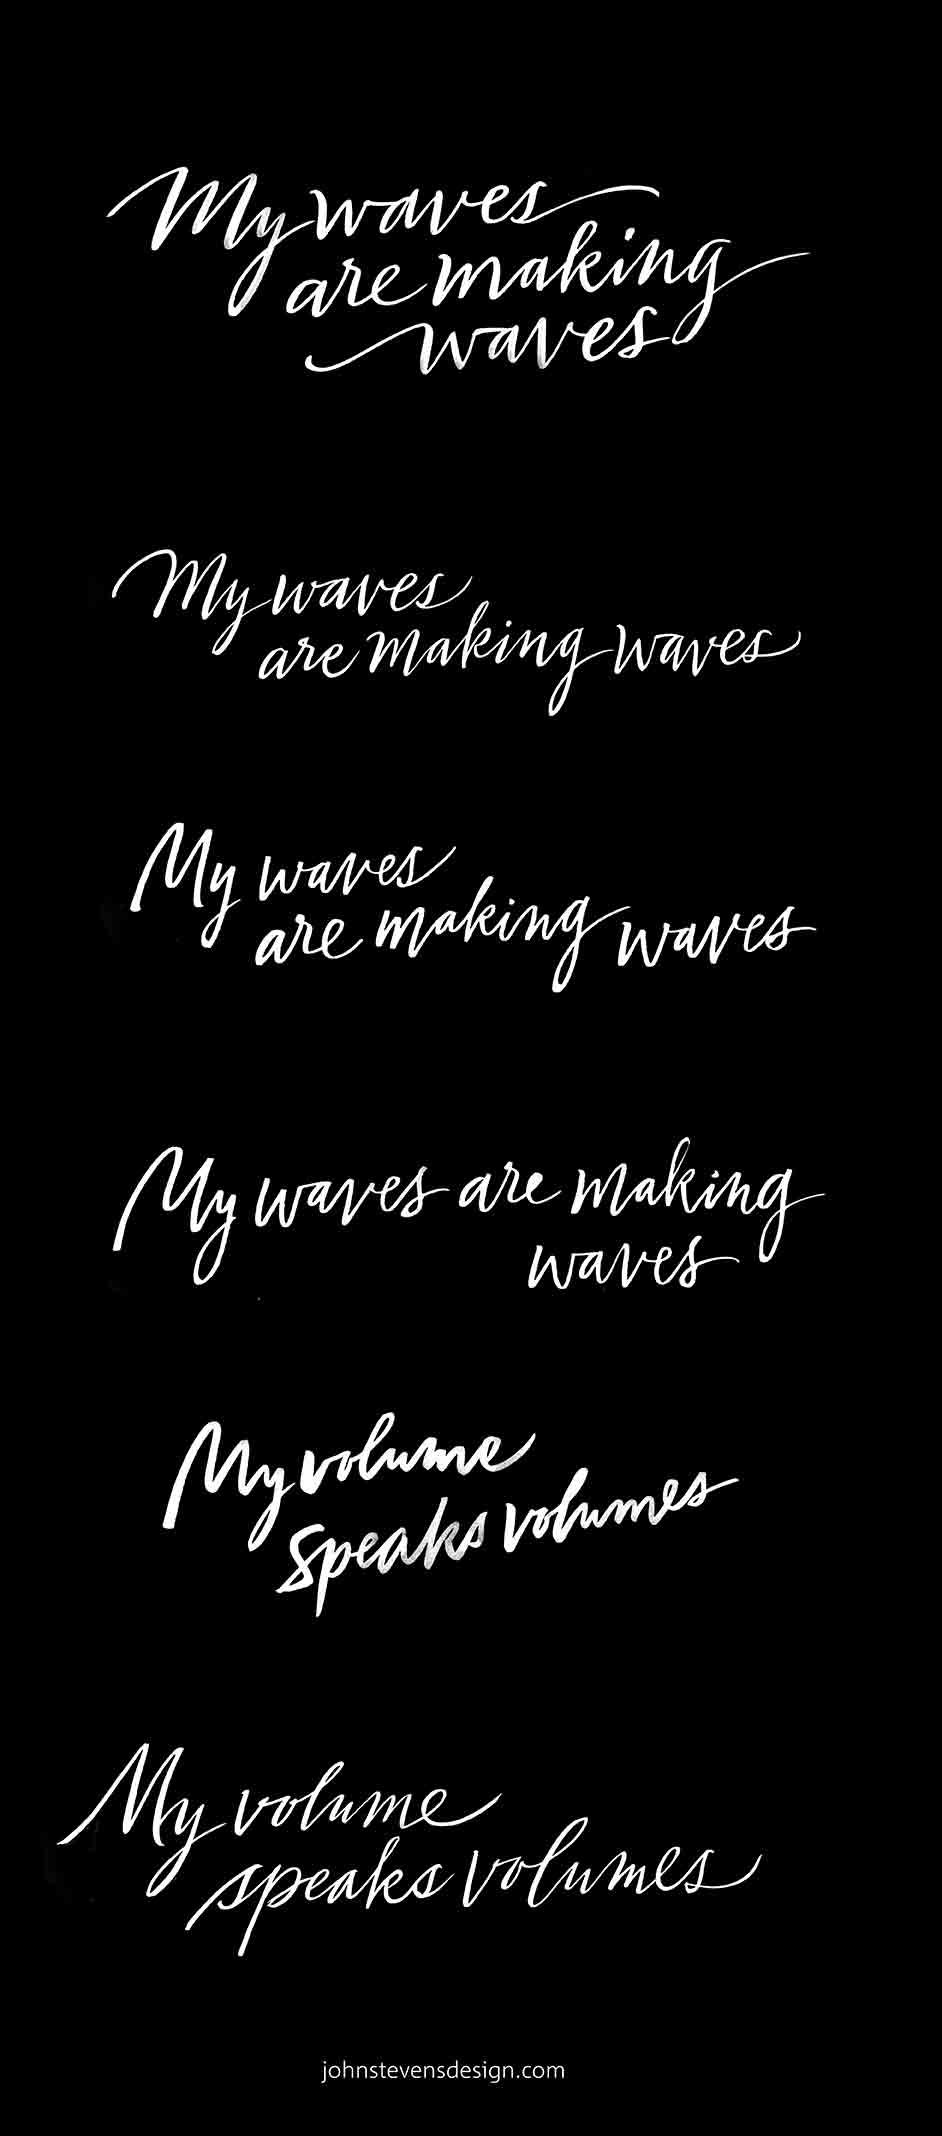 My waves
are making
waves
My waves
are making waves
My waves
are making waves
My waves are making
waves
My volume
speaks volumes
My volume
speaks volumes
johnstevensdesign.com